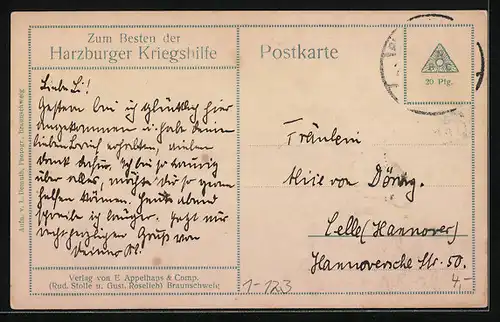 Zum Besten der
Harzburger Kriegshilfe
Postkarte
20 Pfg.
Liebe Li!
Gestern bin ich glücklich hier
angekommen u. habe deinen
lieben Brief erhalten, vielen
Dank dafür. Ich bin so traurig
über alles, möchte Dir so gern
helfen können. Heute abend
schreibe ich länger. Jetzt nur
recht herzlichen Gruß von
Deiner
Fräulein
von
Celle (Hannover)
Hannoversche Str. 50.
Verlag von E. Appelhans & Comp.
(Rud. Stolle u. Gust. Roselieb) Braunschweig
1-123
4,-